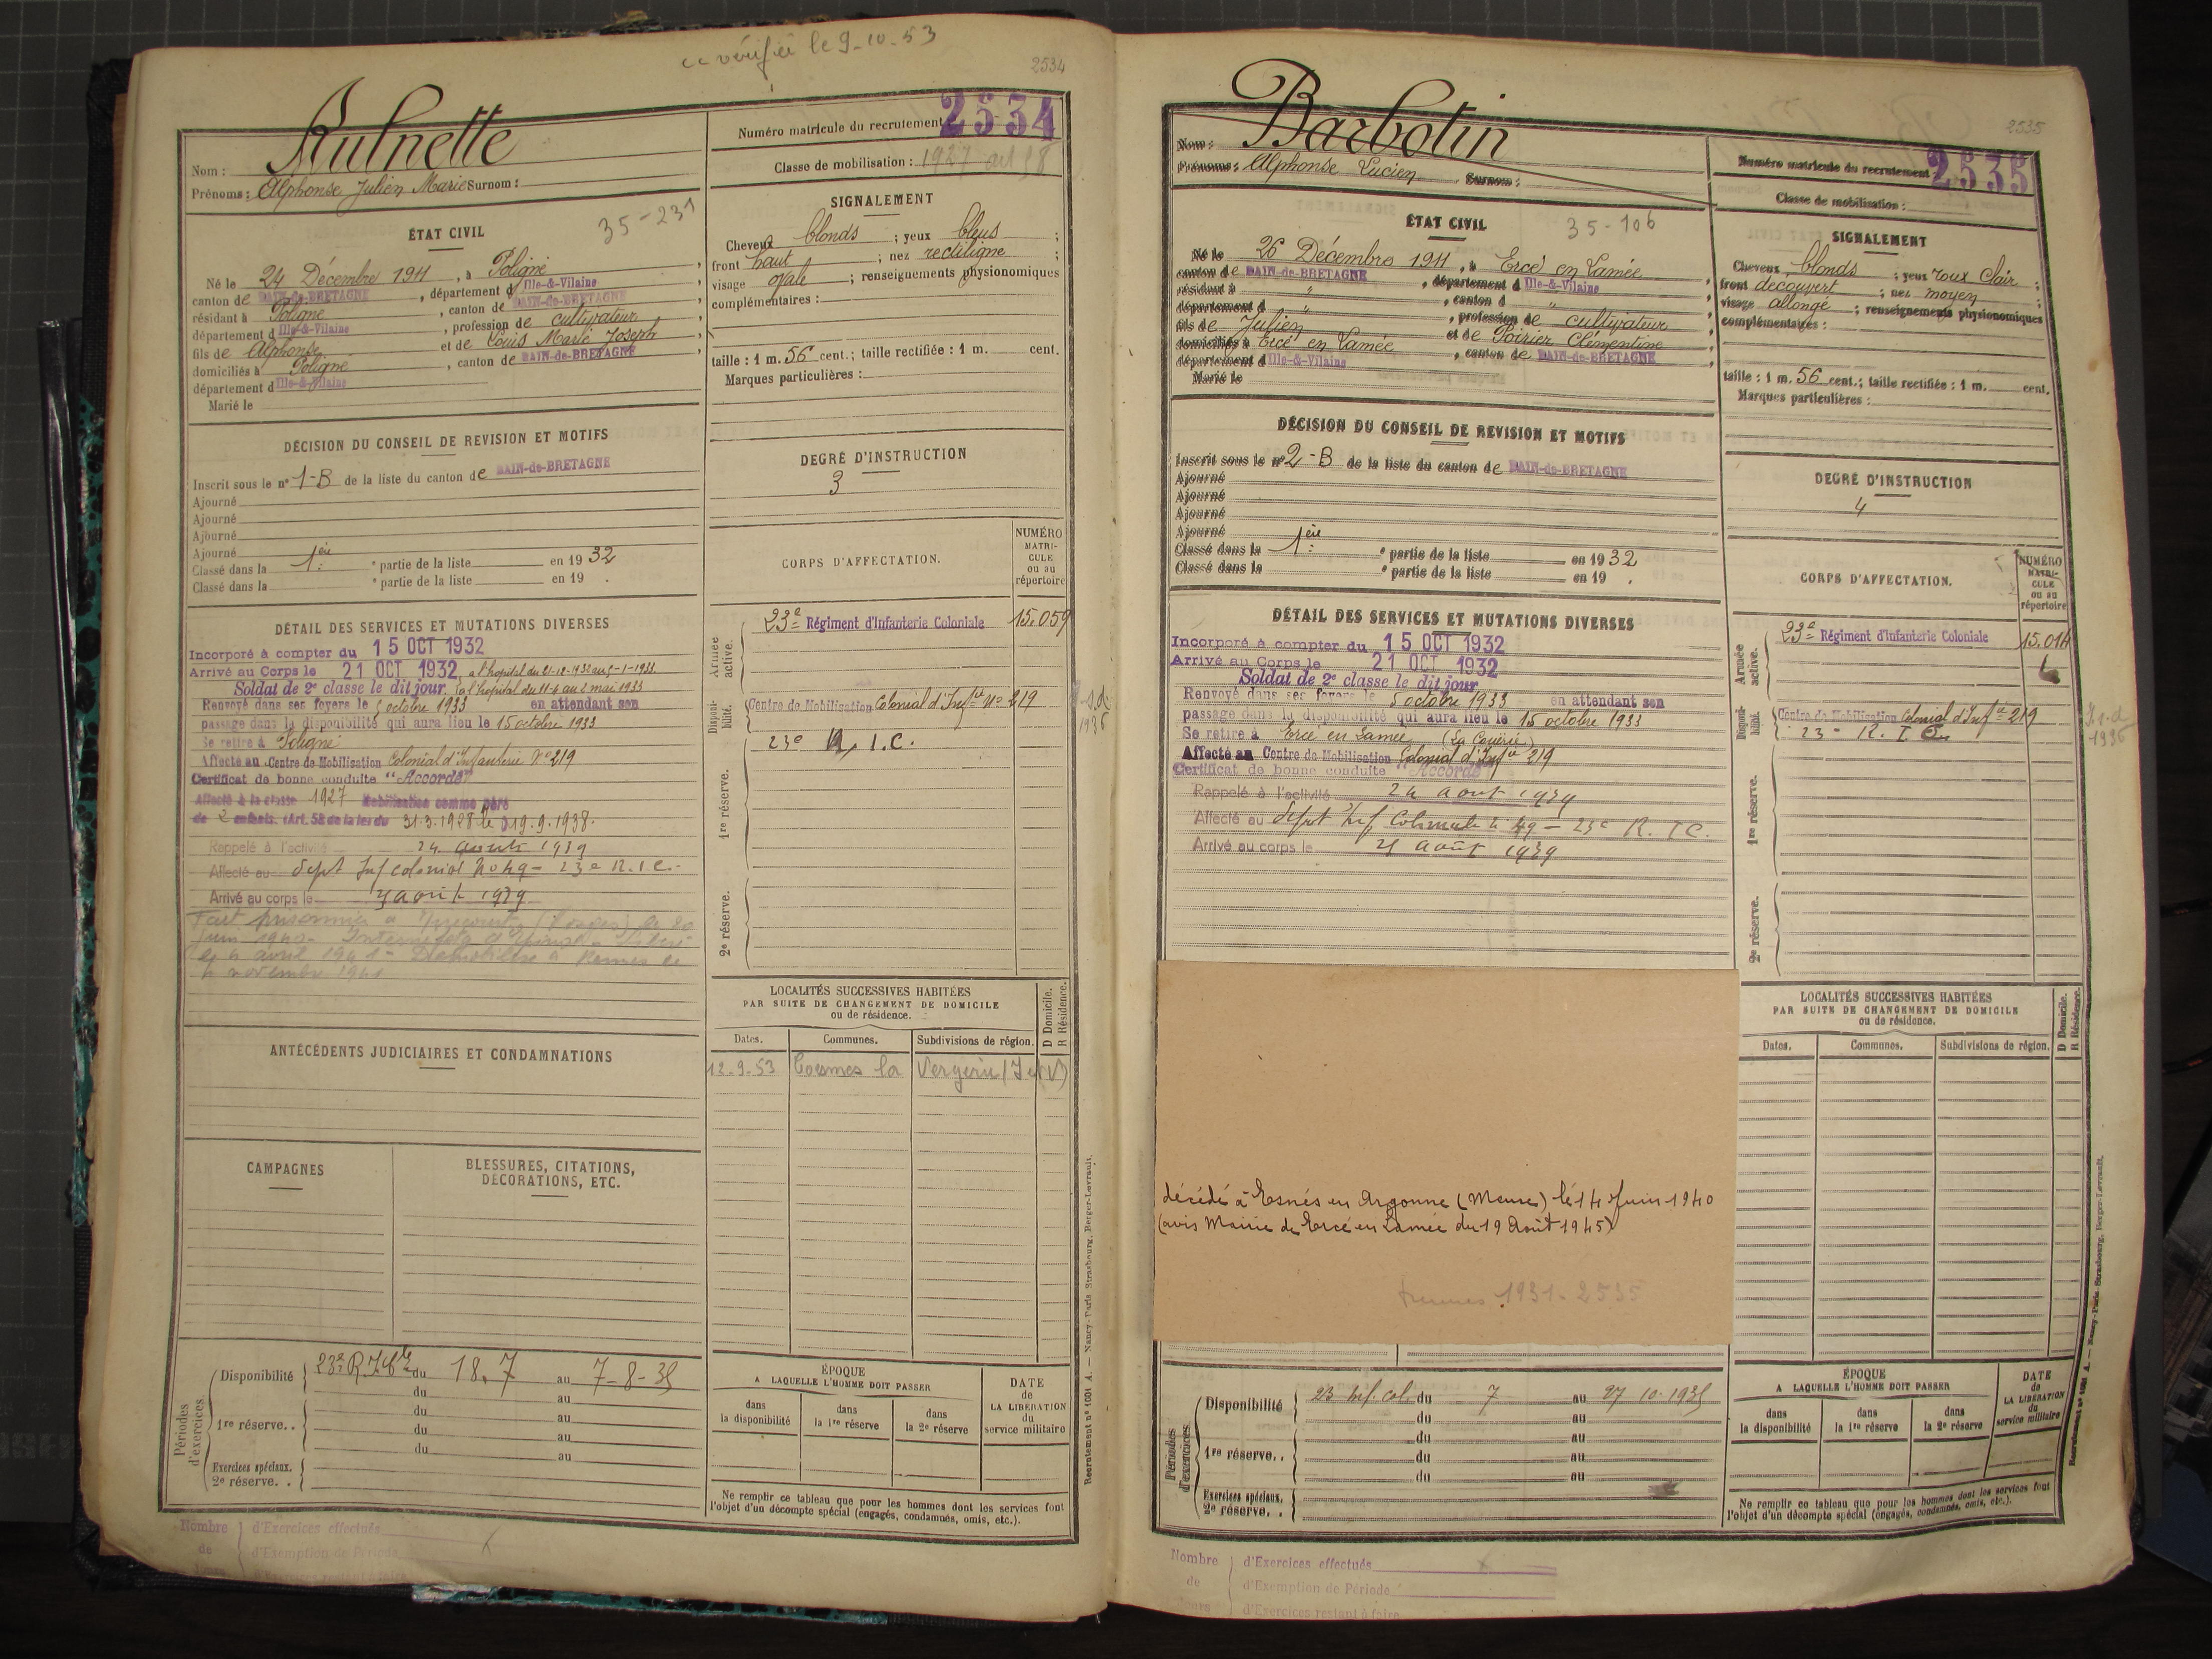 cc vérifié le 9-10-53
2534
Aulnette
Nom :
Prénoms : Alphonse Julien Marie Surnom :
Numéro matricule du recrutement 2534
Classe de mobilisation : 1927 art 58
35-231
ÉTAT CIVIL
Né le 24 Décembre 1911, à Poligné,
canton de BAIN-de-BRETAGNE, département d Ille-&-Vilaine,
résidant à Poligné, canton de BAIN-de-BRETAGNE,
département d Ille-&-Vilaine, profession de cultivateur
fils de Alphonse et de Louis Marie Joseph,
domiciliés à Poligné, canton de BAIN-de-BRETAGNE,
département d Ille-&-Vilaine
Marié le
SIGNALEMENT
Cheveux blonds ; yeux bleus ;
front haut ; nez rectiligne ;
visage ovale ; renseignements physionomiques
complémentaires :
taille : 1 m. 56 cent.; taille rectifiée : 1 m. cent.
Marques particulières :
DÉCISION DU CONSEIL DE REVISION ET MOTIFS
Inscrit sous le n° 1-B de la liste du canton de BAIN-de-BRETAGNE
Ajourné
Ajourné
Ajourné
Ajourné
Classé dans la 1ère ° partie de la liste en 1932
Classé dans la ° partie de la liste en 19 .
DEGRÉ D'INSTRUCTION
3
DÉTAIL DES SERVICES ET MUTATIONS DIVERSES
Incorporé à compter du 15 OCT 1932
Arrivé au Corps le 21 OCT 1932, a l'hopital du 21-12-1932 au 5-1-1933
Soldat de 2e classe le dit jour, a l'hopital du 11-4 au 2 mai 1933
Renvoyé dans ses foyers le 5 octobre 1933 en attendant son
passage dans la disponibilité qui aura lieu le 15 octobre 1933
Se retire à Poligné
Affecté au Centre de Mobilisation Colonial d'Infanterie N° 219
Certificat de bonne conduite "Accordé"
Affecté à la classe 1927 Mobilisation comme père
de 2 enfants. (Art. 58 de la loi du 31-3-1928 le 19.9.1938.
Rappelé à l'activité 24 août 1939
Affecté au dépt Inf colonial No 49 - 23e R.I.C.
Arrivé au corps le août 1939
Fait prisonnier à (Vosges) le 20
Juin 1940 - Interné d'Epinal - Libéré
le 4 avril 1941 - Démobilisé à Rennes le
4 novembre 1941
CORPS D'AFFECTATION.
NUMÉRO MATRI-CULE ou au répertoire
Armée active.
23e Régiment d'Infanterie Coloniale 15.059
Disponi-bilité.
Centre de Mobilisation Colonial d'Infie N° 219
23e R.I.C.
1re réserve.
2e réserve.
ANTÉCÉDENTS JUDICIAIRES ET CONDAMNATIONS
LOCALITÉS SUCCESSIVES HABITÉES
PAR SUITE DE CHANGEMENT DE DOMICILE
ou de résidence.
D Domicile.
R Résidence.
Dates. Communes. Subdivisions de région.
12-9-53 Coesmes la Vergerie (I et V)
CAMPAGNES
BLESSURES, CITATIONS,
DÉCORATIONS, ETC.
Périodes d'exercices.
Disponibilité 23e R.I.Cle du 18.7 au 7-8-35
du au
1re réserve. . du au
du au
du au
Exercices spéciaux.
2e réserve. .
ÉPOQUE
A LAQUELLE L'HOMME DOIT PASSER
dans la disponibilité
dans la 1re réserve
dans la 2e réserve
DATE de LA LIBÉRATION du service militaire
Ne remplir ce tableau que pour les hommes dont les services font
l'objet d'un décompte spécial (engagés, condamnés, omis, etc.).
Recrutement n° 1001 A. — Nancy-Paris-Strasbourg, Berger-Levrault.
Nombre de
d'Exercices effectués
d'Exemption de Période
d'Exercices restant à faire
2535
Barbotin
Nom :
Prénoms : Alphonse Lucien Surnom :
Numéro matricule du recrutement 2535
Classe de mobilisation :
35-106
ÉTAT CIVIL
Né le 26 Décembre 1911, à Ercé en Lamée,
canton de BAIN-de-BRETAGNE, département d Ille-&-Vilaine,
résidant à ", canton d ",
département d ", profession de cultivateur
fils de Julien et de Poirier Clémentine,
domiciliés à Ercé en Lamée, canton de BAIN-de-BRETAGNE,
département d Ille-&-Vilaine
Marié le
SIGNALEMENT
Cheveux blonds ; yeux roux clair ;
front découvert ; nez moyen ;
visage allongé ; renseignements physionomiques
complémentaires :
taille : 1 m. 56 cent.; taille rectifiée : 1 m. cent.
Marques particulières :
DÉCISION DU CONSEIL DE REVISION ET MOTIFS
Inscrit sous le n° 2-B de la liste du canton de BAIN-de-BRETAGNE
Ajourné
Ajourné
Ajourné
Ajourné
Classé dans la 1ère ° partie de la liste en 1932
Classé dans la ° partie de la liste en 19 .
DEGRÉ D'INSTRUCTION
4
DÉTAIL DES SERVICES ET MUTATIONS DIVERSES
Incorporé à compter du 15 OCT 1932
Arrivé au Corps le 21 OCT 1932
Soldat de 2e classe le dit jour
Renvoyé dans ses foyers le 5 octobre 1933 en attendant son
passage dans la disponibilité qui aura lieu le 15 octobre 1933
Se retire à Ercé en Lamée
Affecté au Centre de Mobilisation Colonial d'Infie 219
Certificat de bonne conduite "Accordé"
Rappelé à l'activité 24 août 1939
Affecté au dépt Inf Coloniale n° 49 - 23e R.I.C.
Arrivé au corps le août 1939
CORPS D'AFFECTATION.
NUMÉRO MATRI-CULE ou au répertoire
Armée active.
23e Régiment d'Infanterie Coloniale 15.014
Disponi-bilité.
Centre de Mobilisation Colonial d'Infie 219
23e R.I.C.
1re réserve.
2e réserve.
décédé à Esnes en Argonne (Meuse) le 14 Juin 1940
(avis Mairie de Ercé en Lamée du 19 Août 1945)
Rennes 1931-2535
LOCALITÉS SUCCESSIVES HABITÉES
PAR SUITE DE CHANGEMENT DE DOMICILE
ou de résidence.
D Domicile.
R Résidence.
Dates. Communes. Subdivisions de région.
Périodes d'exercices.
Disponibilité 23 inf. col. du 7 au 27 10-1935
du au
du au
1re réserve. . du au
du au
Exercices spéciaux.
2e réserve. .
ÉPOQUE
A LAQUELLE L'HOMME DOIT PASSER
dans la disponibilité
dans la 1re réserve
dans la 2e réserve
DATE de LA LIBÉRATION du service militaire
Ne remplir ce tableau que pour les hommes dont les services font
l'objet d'un décompte spécial (engagés, condamnés, omis, etc.).
Recrutement n° 1001 A. — Nancy-Paris-Strasbourg, Berger-Levrault.
Nombre de
d'Exercices effectués
d'Exemption de Période
d'Exercices restant à faire